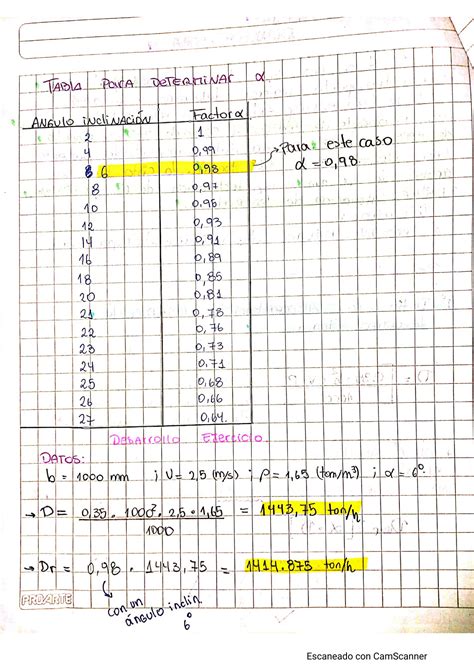 TABLA PARA DETERMINAR α
ANGULO INCLINACIÓN Factor α
2 1
4 0,99
6 0,98 → Para este caso
α = 0,98
8 0,97
10 0,95
12 0,93
14 0,91
16 0,89
18 0,85
20 0,81
21 0,78
22 0,76
23 0,73
24 0,71
25 0,68
26 0,66
27 0,64
Desarrollo Ejercicio
DATOS:
b = 1000 mm ; V = 2,5 (m/s) ; ρ = 1,65 (ton/m³) ; α = 6°
→ D = 0,35 · 1000² · 2,5 · 1,65 = 1443,75 ton/h
1000
→ Dr = 0,98 · 1443,75 = 1414.875 ton/h
con un
ángulo inclin.
6°
PROARTE
Escaneado con CamScanner